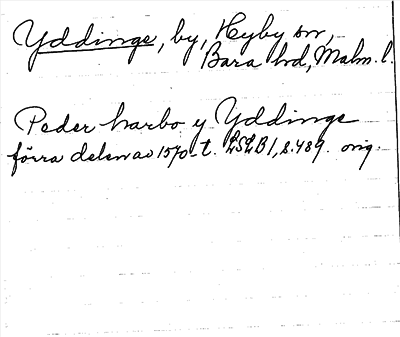 Yddinge, by, Hyby sn,
Bara hd, Malm. l.
Peder harbo y Yddinge
förra delen av 1570-t. LSLB 1, s. 489. orig.